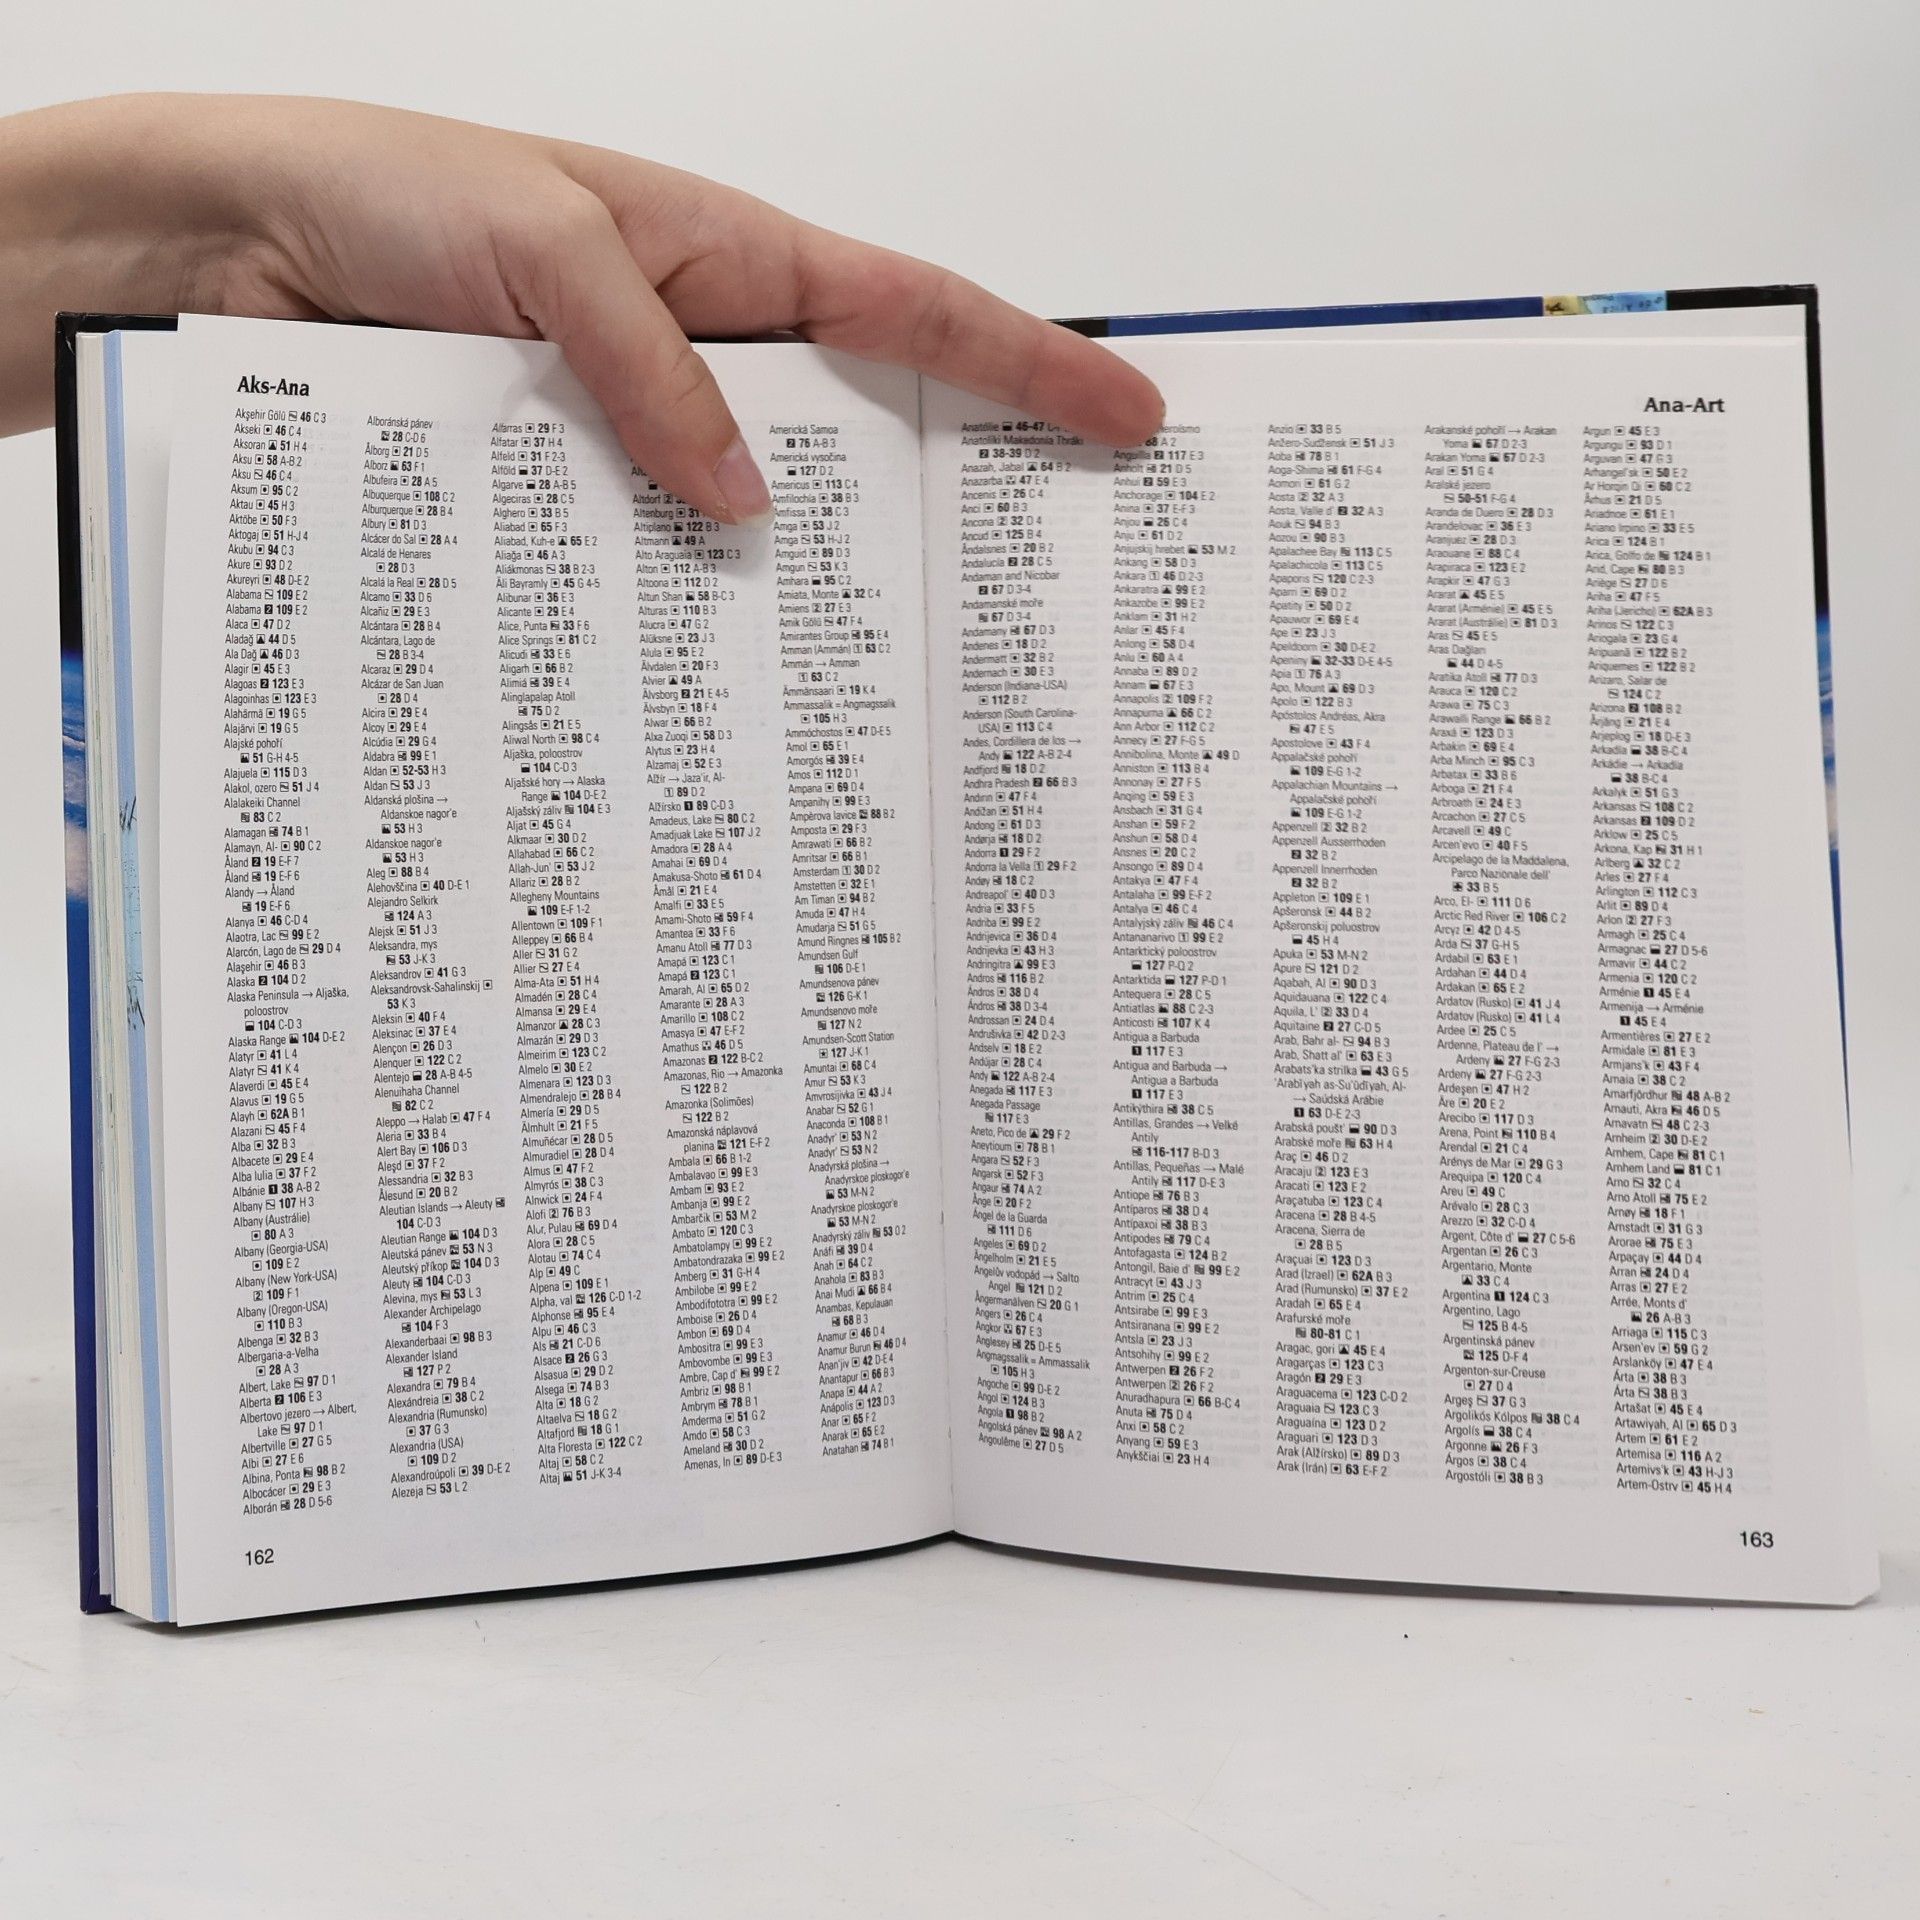 Aks-Ana
Akşehir Gölü 46 C 3
Akseki 46 C 4
Aksoran 51 H 4
Aksu 58 A-B 2
Aksu 46 C 4
Aksum 95 C 2
Aktau 45 H 3
Aktöbe 50 F 3
Aktogaj 51 H-J 4
Akubu 94 C 3
Akure 93 D 2
Akureyri 48 D-E 2
Alabama 109 E 2
Alabama 109 E 2
Alaca 47 D 2
Aladağ 44 D 5
Ala Dağ 46 D 3
Alagir 45 E 3
Alagoas 123 E 3
Alagoinhas 123 E 3
Alahärmä 19 G 5
Alajärvi 19 G 5
Alajské pohoří
51 G-H 4-5
Alajuela 115 D 3
Alakol, ozero 51 J 4
Alalakeiki Channel
83 C 2
Alamagan 74 B 1
Alamayn, Al- 90 C 2
Åland 19 E-F 7
Åland 19 E-F 6
Alandy → Åland
19 E-F 6
Alanya 46 C-D 4
Alaotra, Lac 99 E 2
Alarcón, Lago de 29 D 4
Alaşehir 46 B 3
Alaska 104 D 2
Alaska Peninsula → Aljaška,
poloostrov
104 C-D 3
Alaska Range 104 D-E 2
Alatyr 41 L 4
Alatyr 41 K 4
Alaverdi 45 E 4
Alavus 19 G 5
Alayh 62A B 1
Alazani 45 F 4
Alba 32 B 3
Albacete 29 E 4
Alba Iulia 37 F 2
Albánie 38 A-B 2
Albany 107 H 3
Albany (Austrálie)
80 A 3
Albany (Georgia-USA)
109 E 2
Albany (New York-USA)
109 F 1
Albany (Oregon-USA)
110 B 3
Albenga 32 B 3
Albergaria-a-Velha
28 A 3
Albert, Lake 97 D 1
Alberta 106 E 3
Albertovo jezero → Albert,
Lake 97 D 1
Albertville 27 G 5
Albi 27 E 6
Albina, Ponta 98 B 2
Albocácer 29 E 3
Alborán 28 D 5-6
Alboránská pánev
28 C-D 6
Ålborg 21 D 5
Alborz 63 F 1
Albufeira 28 A 5
Albuquerque 108 C 2
Alburquerque 28 B 4
Albury 81 D 3
Alcácer do Sal 28 A 4
Alcalá de Henares
28 D 3
Alcalá la Real 28 D 5
Alcamo 33 D 6
Alcañiz 29 E 3
Alcántara 28 B 4
Alcántara, Lago de
28 B 3-4
Alcaraz 29 D 4
Alcázar de San Juan
28 D 4
Alcira 29 E 4
Alcoy 29 E 4
Alcúdia 29 G 4
Aldabra 99 E 1
Aldan 52-53 H 3
Aldan 53 J 3
Aldanská plošina →
Aldanskoe nagor'e
53 H 3
Aldanskoe nagor'e
53 H 3
Aleg 88 B 4
Alehovščina 40 D-E 1
Alejandro Selkirk
124 A 3
Alejsk 51 J 3
Aleksandra, mys
53 J-K 3
Aleksandrov 41 G 3
Aleksandrovsk-Sahalinskij
53 K 3
Aleksin 40 F 4
Aleksinac 37 E 4
Alençon 26 D 3
Alenquer 122 C 2
Alentejo 28 A-B 4-5
Alenuihaha Channel
82 C 2
Aleppo → Halab 47 F 4
Aleria 33 B 4
Alert Bay 106 D 3
Aleşd 37 F 2
Alessandria 32 B 3
Ålesund 20 B 2
Aleutian Islands → Aleuty
104 C-D 3
Aleutian Range 104 D 3
Aleutská pánev 53 N 3
Aleutský příkop 104 D 3
Aleuty 104 C-D 3
Alevina, mys 53 L 3
Alexander Archipelago
104 F 3
Alexanderbaai 98 B 3
Alexander Island
127 P 2
Alexandra 79 B 4
Alexándreia 38 C 2
Alexandria (Rumunsko)
37 G 3
Alexandria (USA)
109 D 2
Alexandroúpoli 39 D-E 2
Alezeja 53 L 2
Alfarras 29 F 3
Alfatar 37 H 4
Alfeld 31 F 2-3
Alföld 37 D-E 2
Algarve 28 A-B 5
Algeciras 28 C 5
Alghero 33 B 5
Aliabad 65 F 3
Aliabad, Kuh-e 65 E 2
Aliağa 46 A 3
Aliákmonas 38 B 2-3
Äli Bayramly 45 G 4-5
Alibunar 36 E 3
Alicante 29 E 4
Alice, Punta 33 F 6
Alice Springs 81 C 2
Alicudi 33 E 6
Aligarh 66 B 2
Alimiá 39 E 4
Alinglapalap Atoll
75 D 2
Alingsås 21 E 5
Aliwal North 98 C 4
Aljaška, poloostrov
104 C-D 3
Aljašské hory → Alaska
Range 104 D-E 2
Aljašský záliv 104 E 3
Aljat 45 G 4
Alkmaar 30 D 2
Allahabad 66 C 2
Allah-Jun' 53 J 2
Allariz 28 B 2
Allegheny Mountains
109 E-F 1-2
Allentown 109 F 1
Alleppey 66 B 4
Aller 31 G 2
Allier 27 E 4
Alma-Ata 51 H 4
Almadén 28 C 4
Almansa 29 E 4
Almanzor 28 C 3
Almazán 29 D 3
Almeirim 123 C 2
Almelo 30 E 2
Almenara 123 D 3
Almendralejo 28 B 4
Almería 29 D 5
Älmhult 21 F 5
Almuñécar 28 D 5
Almuradiel 28 D 4
Almus 47 F 2
Almyrós 38 C 3
Alnwick 24 F 4
Alofi 76 B 3
Alor, Pulau 69 D 4
Alora 28 C 5
Alotau 74 C 4
Alp 49 C
Alpena 109 E 1
Alpha, val 126 C-D 1-2
Alphonse 95 E 4
Alpu 46 C 3
Als 21 C-D 6
Alsace 26 G 3
Alsasua 29 D 2
Alsega 74 B 3
Alta 18 G 2
Altaelva 18 G 2
Altafjord 18 G 1
Alta Floresta 122 C 2
Altaj 58 C 2
Altaj 51 J-K 3-4
Altdorf
Altenburg 31
Altiplano 122 B 3
Altmann 49 A
Alto Araguaia 123 C 3
Alton 112 A-B 3
Altoona 112 D 2
Altun Shan 58 B-C 3
Alturas 110 B 3
Alucra 47 G 2
Alūksne 23 J 3
Alula 95 E 2
Älvdalen 20 F 3
Alvier 49 A
Älvsborg 21 E 4-5
Älvsbyn 18 F 4
Alwar 66 B 2
Alxa Zuoqi 58 D 3
Alytus 23 H 4
Alzamaj 52 E 3
Alžír → Jaza'ir, Al-
89 D 2
Alžírsko 89 C-D 3
Amadeus, Lake 80 C 2
Amadjuak Lake 107 J 2
Amadora 28 A 4
Amahai 69 D 4
Amakusa-Shoto 61 D 4
Åmål 21 E 4
Amalfi 33 E 5
Amami-Shoto 59 F 4
Amantea 33 F 6
Amanu Atoll 77 D 3
Amapá 123 C 1
Amapá 123 C 1
Amarah, Al 65 D 2
Amarante 28 A 3
Amarillo 108 C 2
Amasya 47 E-F 2
Amathus 46 D 5
Amazonas 122 B-C 2
Amazonas, Rio → Amazonka
122 B 2
Amazonka (Solimões)
122 B 2
Amazonská náplavová
planina 121 E-F 2
Ambala 66 B 1-2
Ambalavao 99 E 3
Ambam 93 E 2
Ambanja 99 E 2
Ambarčik 53 M 2
Ambato 120 C 3
Ambatolampy 99 E 2
Ambatondrazaka 99 E 2
Amberg 31 G-H 4
Ambilobe 99 E 2
Ambodifototra 99 E 2
Amboise 26 D 4
Ambon 69 D 4
Ambositra 99 E 3
Ambovombe 99 E 3
Ambre, Cap d' 99 E 2
Ambriz 98 B 1
Ambrym 78 B 1
Amderma 51 G 2
Amdo 58 C 3
Ameland 30 D 2
Amenas, In 89 D-E 3
Americká Samoa
76 A-B 3
Americká vysočina
127 D 2
Americus 113 C 4
Amfilochía 38 B 3
Amfissa 38 C 3
Amga 53 J 2
Amga 53 H-J 2
Amguid 89 D 3
Amgun 53 K 3
Amhara 95 C 2
Amiata, Monte 32 C 4
Amiens 27 E 3
Amik Gölü 47 F 4
Amirantes Group 95 E 4
Amman (Ammān) 63 C 2
Ammán → Amman
63 C 2
Ämmänsaari 19 K 4
Ammassalik = Angmagssalik
105 H 3
Ammóchostos 47 D-E 5
Amol 65 E 1
Amorgós 39 E 4
Amos 112 D 1
Ampana 69 D 4
Ampanihy 99 E 3
Ampèrova lavice 88 B 2
Amposta 29 F 3
Amrawati 66 B 2
Amritsar 66 B 1
Amsterdam 30 D 2
Amstetten 32 E 1
Am Timan 94 B 2
Amuda 47 H 4
Amudarja 51 G 5
Amund Ringnes 105 B 2
Amundsen Gulf
106 D-E 1
Amundsenova pánev
126 G-K 1
Amundsenovo moře
127 N 2
Amundsen-Scott Station
127 J-K 1
Amuntai 68 C 4
Amur 53 K 3
Amvrosijivka 43 J 4
Anabar 52 G 1
Anaconda 108 B 1
Anadyr' 53 N 2
Anadyr' 53 N 2
Anadyrská plošina →
Anadyrskoe ploskogor'e
53 M-N 2
Anadyrskoe ploskogor'e
53 M-N 2
Anadyrský záliv 53 O 2
Anáfi 39 D 4
Anah 64 C 2
Anahola 83 B 3
Anai Mudi 66 B 4
Anambas, Kepulauan
68 B 3
Anamur 46 D 4
Anamur Burun 46 D 4
Anan'jiv 42 D-E 4
Anantapur 66 B 3
Anapa 44 A 2
Anápolis 123 D 3
Anar 65 F 2
Anarak 65 E 2
Anatahan 74 B 1
162
Ana-Art
Anatólie 46-47
Anatolikí Makedonía Thráki
38-39 D 2
Anazah, Jabal 64 B 2
Anazarba 47 E 4
Ancenis 26 C 4
Anci 60 B 3
Ancona 32 D 4
Ancud 125 B 4
Åndalsnes 20 B 2
Andalucía 28 C 5
Andaman and Nicobar
67 D 3-4
Andamanské moře
67 D 3-4
Andamany 67 D 3
Andenes 18 D 2
Andermatt 32 B 2
Andernach 30 E 3
Anderson (Indiana-USA)
112 B 2
Anderson (South Carolina-
USA) 113 C 4
Andes, Cordillera de los →
Andy 122 A-B 2-4
Andfjord 18 D 2
Andhra Pradesh 66 B 3
Andırın 47 F 4
Andižan 51 H 4
Andong 61 D 3
Andørja 18 D 2
Andorra 29 F 2
Andorra la Vella 29 F 2
Andøy 18 C 2
Andreapol' 40 D 3
Andria 33 F 5
Andriba 99 E 2
Andrijevica 36 D 4
Andrijevka 43 H 3
Andringitra 99 E 3
Andros 116 B 2
Ándros 38 D 4
Ándros 38 D 3-4
Androssan 24 D 4
Andrušivka 42 D 2-3
Andselv 18 E 2
Andújar 28 C 4
Andy 122 A-B 2-4
Anegada 117 E 3
Anegada Passage
117 E 3
Aneto, Pico de 29 F 2
Aneytioum 78 B 1
Angara 52 F 3
Angarsk 52 F 3
Angaur 74 A 2
Ånge 20 F 2
Ángel de la Guarda
111 D 6
Angeles 69 D 2
Ängelholm 21 E 5
Angelův vodopád → Salto
Angel 121 D 2
Ångermanälven 20 G 1
Angers 26 C 4
Angkor 67 E 3
Anglesey 25 D-E 5
Angmagssalik = Ammassalik
105 H 3
Angoche 99 D-E 2
Angol 124 B 3
Angola 98 B 2
Angolská pánev 98 A 2
Angoulême 27 D 5
heroísmo
88 A 2
Anguilla 117 E 3
Anholt 21 D 5
Anhui 59 E 3
Anchorage 104 E 2
Anina 37 E-F 3
Anjou 26 C 4
Anju 61 D 2
Anjujskij hrebet 53 M 2
Ankang 58 D 3
Ankara 46 D 2-3
Ankaratra 99 E 2
Ankazobe 99 E 2
Anklam 31 H 2
Anlar 45 F 4
Anlong 58 D 4
Anlu 60 A 4
Annaba 89 D 2
Annam 67 E 3
Annapolis 109 F 2
Annapurna 66 C 2
Ann Arbor 112 C 2
Annecy 27 F-G 5
Annibolina, Monte 49 D
Anniston 113 B 4
Annonay 27 F 5
Anqing 59 E 3
Ansbach 31 G 4
Anshan 59 F 2
Anshun 58 D 4
Ansnes 20 C 2
Ansongo 89 D 4
Antakya 47 F 4
Antalaha 99 E-F 2
Antalya 46 C 4
Antalyjský záliv 46 C 4
Antananarivo 99 E 2
Antarktický poloostrov
127 P-Q 2
Antarktida 127 P-D 1
Antequera 28 C 5
Antiatlas 88 C 2-3
Anticosti 107 K 4
Antigua a Barbuda
117 E 3
Antigua and Barbuda →
Antigua a Barbuda
117 E 3
Antikýthira 38 C 5
Antillas, Grandes → Velké
Antily
116-117 B-D 3
Antillas, Pequeñas → Malé
Antily 117 D-E 3
Antiope 76 B 3
Antíparos 38 D 4
Antípaxoi 38 B 3
Antipodes 79 C 4
Antofagasta 124 B 2
Antongil, Baie d' 99 E 2
Antracyt 43 J 3
Antrim 25 C 4
Antsirabe 99 E 3
Antsiranana 99 E 2
Antsla 23 J 3
Antsohihy 99 E 2
Antwerpen 26 F 2
Antwerpen 26 F 2
Anuradhapura 66 B-C 4
Anuta 75 D 4
Anxi 58 C 2
Anyang 59 E 3
Anykščiai 23 H 4
Anzio 33 B 5
Anžero-Sudžensk 51 J 3
Aoba 78 B 1
Aoga-Shima 61 F-G 4
Aomori 61 G 2
Aosta 32 A 3
Aosta, Valle d' 32 A 3
Aouk 94 B 3
Aozou 90 B 3
Apalachee Bay 113 C 5
Apalachicola 113 C 5
Apaporis 120 C 2-3
Aparri 69 D 2
Apatity 50 D 2
Apauwor 69 E 4
Ape 23 J 3
Apeldoorn 30 D-E 2
Apeniny 32-33 D-E 4-5
Apia 76 A 3
Apo, Mount 69 D 3
Apolo 122 B 3
Apóstolos Andréas, Akra
47 E 5
Apostolove 43 F 4
Appalačské pohoří
109 E-G 1-2
Appalachian Mountains →
Appalačské pohoří
109 E-G 1-2
Appenzell 32 B 2
Appenzell Ausserrhoden
32 B 2
Appenzell Innerrhoden
32 B 2
Appleton 109 E 1
Apšeronsk 44 B 2
Apšeronskij poluostrov
45 H 4
Apuka 53 M-N 2
Apure 121 D 2
Aqabah, Al 90 D 3
Aquidauana 122 C 4
Aquila, L' 33 D 4
Aquitaine 27 C-D 5
Arab, Bahr al- 94 B 3
Arab, Shatt al' 63 E 3
Arabats'ka strilka 43 G 5
'Arabīyah as-Su'ūdīyah, Al-
→ Saúdská Arábie
63 D-E 2-3
Arabská poušť 90 D 3
Arabské moře 63 H 4
Araç 46 D 2
Aracaju 123 E 3
Aracati 123 E 2
Araçatuba 123 C 4
Aracena 28 B 4-5
Aracena, Sierra de
28 B 5
Araçuai 123 D 3
Arad (Izrael) 62A B 3
Arad (Rumunsko) 37 E 2
Aradah 65 E 4
Arafurské moře
80-81 C 1
Aragac, gori 45 E 4
Aragarças 123 C 3
Aragón 29 E 3
Araguacema 123 C-D 2
Araguaia 123 C 3
Araguaína 123 D 2
Araguari 123 D 3
Arak (Alžírsko) 89 D 3
Arak (Irán) 63 E-F 2
Arakanské pohoří → Arakan
Yoma 67 D 2-3
Arakan Yoma 67 D 2-3
Aral 51 G 4
Aralské jezero
50-51 F-G 4
Aranda de Duero 28 D 3
Arandelovac 36 E 3
Aranjuez 28 D 3
Araouane 88 C 4
Arapiraca 123 E 2
Arapkir 47 G 3
Ararat 45 E 5
Ararat (Arménie) 45 E 5
Ararat (Austrálie) 81 D 3
Aras 45 E 5
Aras Dağları
44 D 4-5
Aratika Atoll 77 D 3
Arauca 120 C 2
Arawa 75 C 3
Arawalli Range 66 B 2
Araxá 123 D 3
Arbakin 69 E 4
Arba Minch 95 C 3
Arbatax 33 B 6
Arboga 21 F 4
Arbroath 24 E 3
Arcachon 27 C 5
Arcavell 49 C
Arcen'evo 40 F 5
Arcipelago de la Maddalena,
Parco Nazionale dell'
33 B 5
Arco, El- 111 D 6
Arctic Red River 106 C 2
Arcyz 42 D 4-5
Arda 37 G-H 5
Ardabil 63 E 1
Ardahan 44 D 4
Ardakan 65 E 2
Ardatov (Rusko) 41 J 4
Ardatov (Rusko) 41 L 4
Ardee 25 C 5
Ardenne, Plateau de l' →
Ardeny 27 F-G 2-3
Ardeny 27 F-G 2-3
Ardeşen 47 H 2
Åre 20 E 2
Arecibo 117 D 3
Arena, Point 110 B 4
Arendal 21 C 4
Arénys de Mar 29 G 3
Arequipa 120 C 4
Areu 49 C
Arévalo 28 C 3
Arezzo 32 C-D 4
Argent, Côte d' 27 C 5-6
Argentan 26 C 3
Argentario, Monte
33 C 4
Argentina 124 C 3
Argentino, Lago
125 B 4-5
Argentinská pánev
125 D-F 4
Argenton-sur-Creuse
27 D 4
Argeş 37 G 3
Argolikós Kólpos 38 C 4
Argolís 38 C 4
Argonne 26 F 3
Árgos 38 C 4
Argostóli 38 B 3
Argun 45 E 3
Argungu 93 D 1
Arguvan 47 G 3
Arhangel'sk 50 E 2
Ar Horqin Qi 60 C 2
Århus 21 D 5
Ariadnoe 61 E 1
Ariano Irpino 33 E 5
Arica 124 B 1
Arica, Golfo de 124 B 1
Arid, Cape 80 B 3
Ariège 27 D 6
Ariha 47 F 5
Ariha (Jericho) 62A B 3
Arinos 122 C 3
Ariogala 23 G 4
Aripuanã 122 B 2
Ariquemes 122 B 2
Arizaro, Salar de
124 C 2
Arizona 108 B 2
Årjäng 21 E 4
Arjeplog 18 D-E 3
Arkadía 38 B-C 4
Arkádie → Arkadía
38 B-C 4
Arkalyk 51 G 3
Arkansas 108 C 2
Arkansas 109 D 2
Arklow 25 C 5
Arkona, Kap 31 H 1
Arlberg 32 C 2
Arles 27 F 4
Arlington 112 C 3
Arlit 89 D 4
Arlon 27 F 3
Armagh 25 C 4
Armagnac 27 D 5-6
Armavir 44 C 2
Armenia 120 C 2
Arménie 45 E 4
Armenija → Arménie
45 E 4
Armentières 27 E 2
Armidale 81 E 3
Armjans'k 43 F 4
Arnaia 38 C 2
Arnarfjörður 48 A-B 2
Arnauti, Akra 46 D 5
Arnavatn 48 C 2-3
Arnheim 30 D-E 2
Arnhem, Cape 81 C 1
Arnhem Land 81 C 1
Arno 32 C 4
Arno Atoll 75 E 2
Arnøy 18 F 1
Arnstadt 31 G 3
Arorae 75 E 3
Arpaçay 44 D 4
Arran 24 D 4
Arras 27 E 2
Arrée, Monts d'
26 A-B 3
Arriaga 115 C 3
Arsen'ev 59 G 2
Arslanköy 47 E 4
Árta 38 B 3
Árta 38 B 3
Artašat 45 E 4
Artawiyah, Al 65 D 3
Artem 61 E 2
Artemisa 116 A 2
Artemivs'k 43 H-J 3
Artem-Ostrv 45 H 4
163